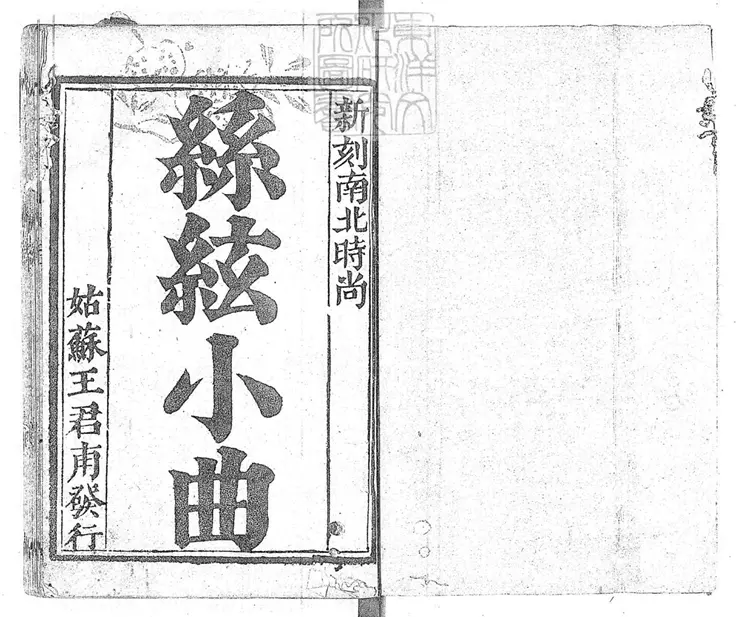 新刻南北時尚
絲絃小曲
姑蘇王君甫發行